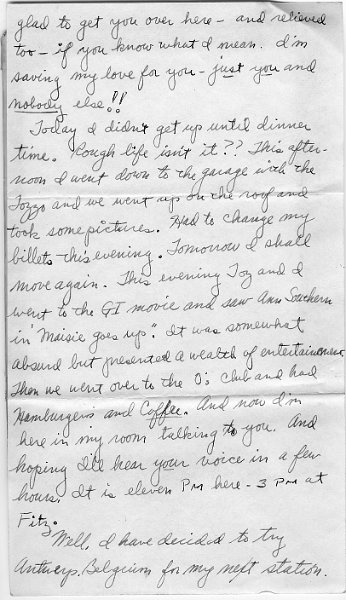 glad to get you over here - and relieved
too - if you know what I mean. I'm
saving my love for you - just you and
nobody else!!
Today I didn't get up until dinner
time. Rough life isn't it?? This after-
noon I went down to the garage with the
Tozzo and we went up on the roof and
took some pictures. Had to change my
billets this evening. Tomorrow I shall
move again. This evening Toz and I
went to the GI movie and saw Ann Sothern
in "Maisie goes up". It was somewhat
absurd but presented a wealth of entertainment.
Then we went over to the O's Club and had
Hamburgers and Coffee. And now I'm
here in my room talking to you. And
hoping I'll hear your voice in a few
hours. It is eleven PM here - 3 PM at
Fitz.
Well, I have decided to try
Antwerp, Belgium for my next station.